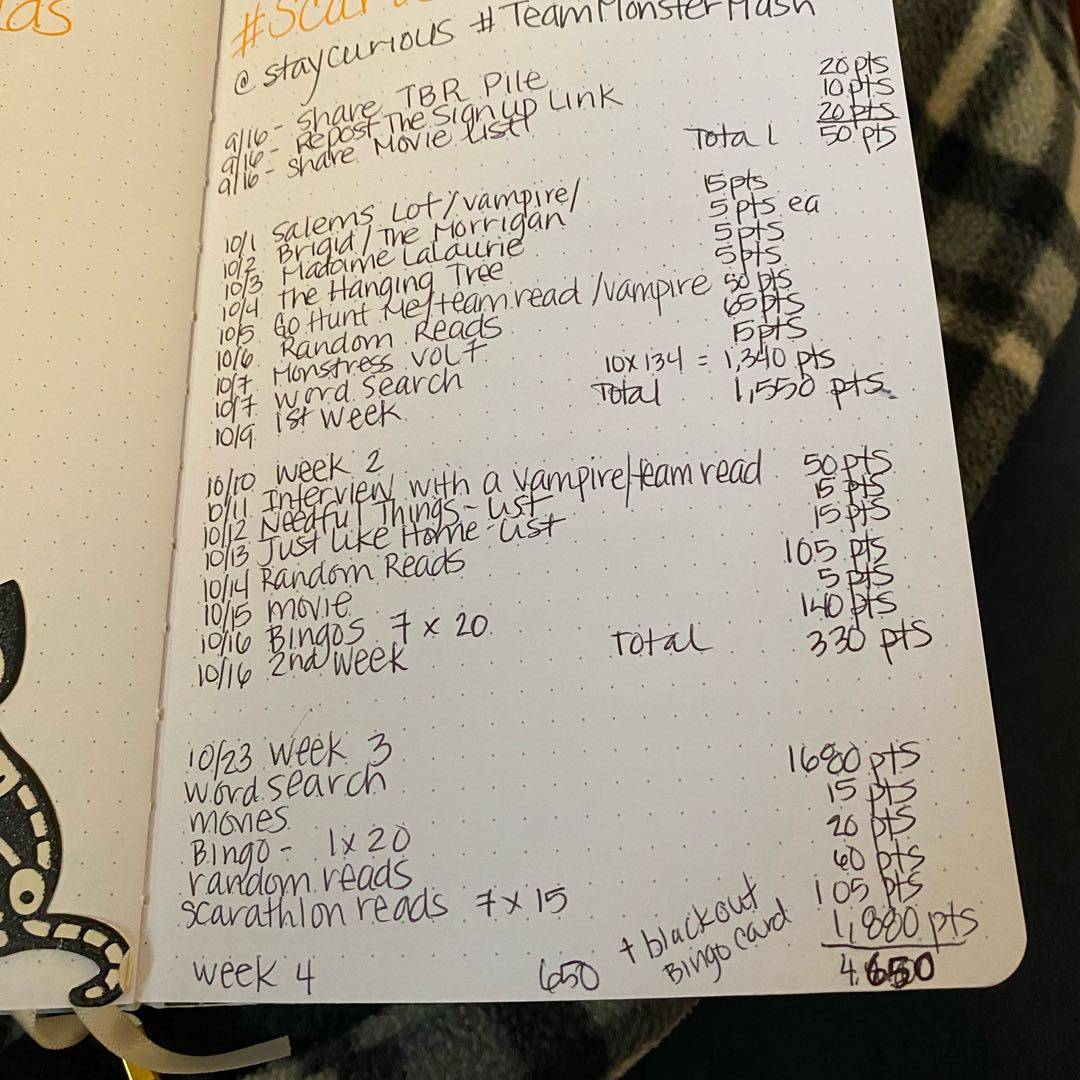 ds
#Scar
@staycurious #TeamMonsterMash
9/16 - Share TBR Pile 20 pts
9/16 - Repost The Sign Up Link 10 pts
9/16 - Share Movie List 20 pts
Total 50 pts
10/1 Salems Lot/vampire/ 15 pts
10/2 Brigid/The Morrigan 5 pts ea
10/3 Madame LaLaurie 5 pts
10/4 the Hanging Tree 5 pts
10/5 Go Hunt Me/team read/vampire 50 pts
10/6 Random Reads 65 pts
10/7 Monstress vol 7 15 pts
10/7 word search 10 x 134 = 1,340 pts
10/9 1st week Total 1,550 pts
10/10 week 2
10/11 Interview with a vampire/team read 50 pts
10/12 Needful Things - List 15 pts
10/13 Just Like Home - List 15 pts
10/14 Random Reads 105 pts
10/15 movie 5 pts
10/16 Bingos 7 x 20 140 pts
10/16 2nd week Total 330 pts
10/23 week 3
word search 1680 pts
movies 15 pts
Bingo - 1 x 20 20 pts
random reads 60 pts
scarathlon reads 7 x 15 105 pts
1,880 pts
week 4 650 + blackout Bingo card 4,650